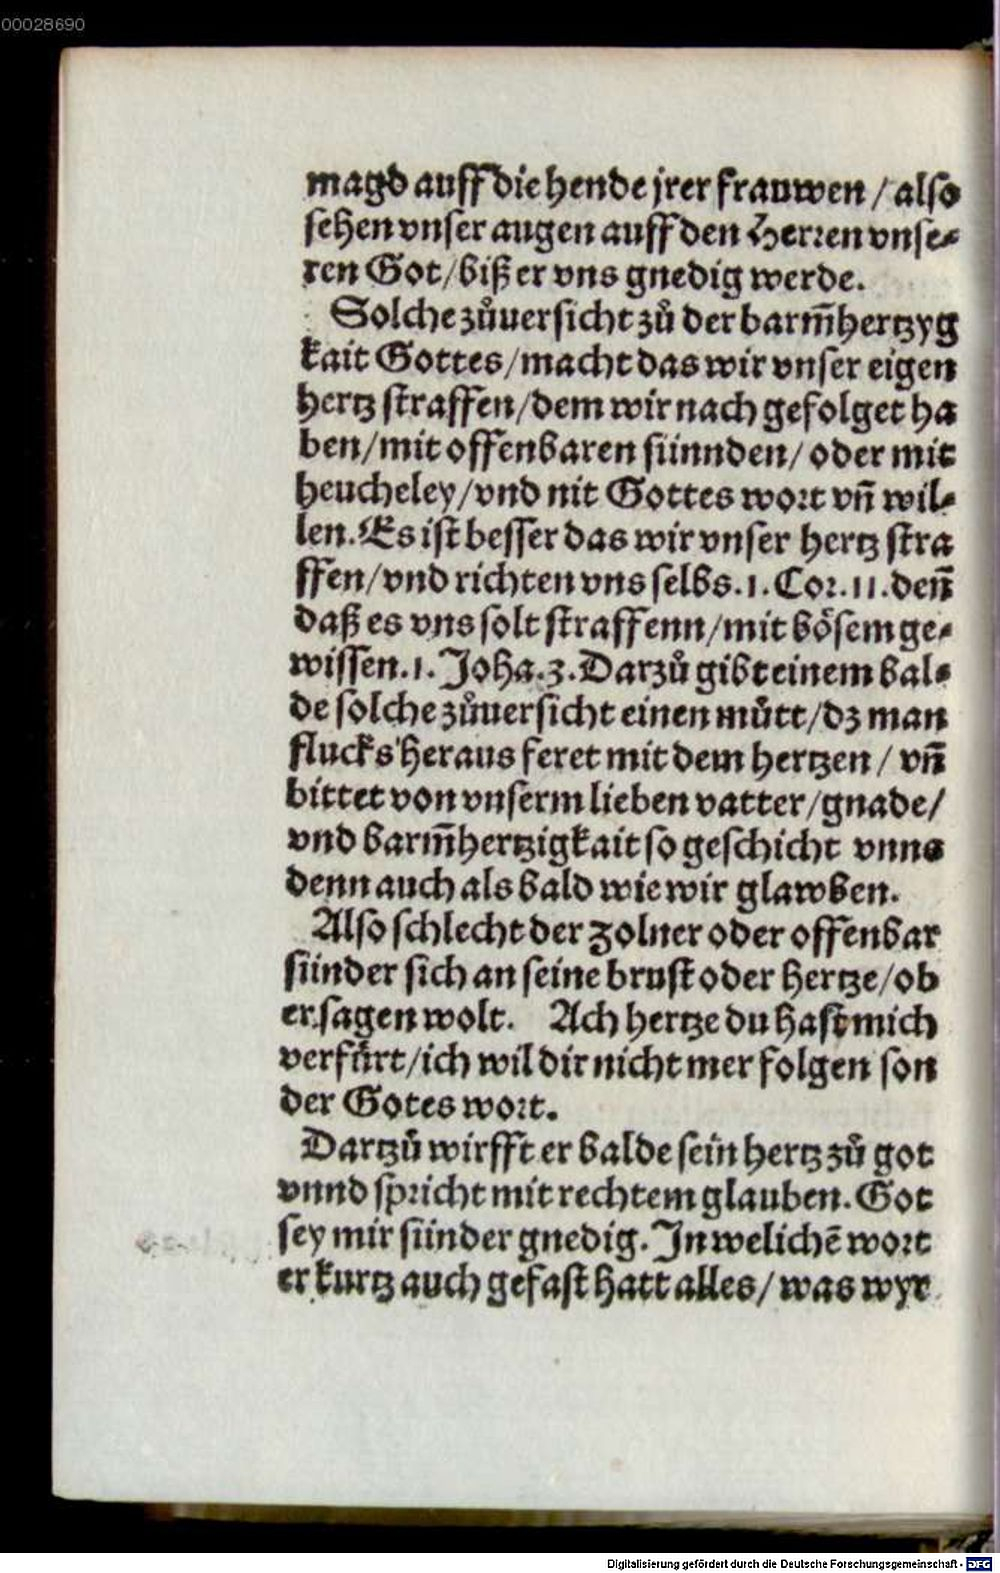 00028690
magd auff die hende jrer frauwen / also
sehen vnser augen auff den Herren vnse⸗
ren Got / biß er vns gnedig werde.
Solche zůuersicht zů der barm̄hertzyg
kait Gottes / macht das wir vnser eigen
hertz straffen / dem wir nach gefolget ha
ben / mit offenbaren sünnden / oder mit
heucheley / vnd nit Gottes wort vn̄ wil⸗
len. Es ist besser das wir vnser hertz stra
ffen / vnd richten vns selbs. 1. Cor. 11. den̄
daß es vns solt straffenn / mit bösem ge⸗
wissen. 1. Joha. 3. Darzů gibt einem bal⸗
de solche zůuersicht einen můtt / dz man
flucks heraus feret mit dem hertzen / vn̄
bittet von vnserm lieben vatter / gnade /
vnd barm̄hertzigkait so geschicht vnns
denn auch als bald wie wir glawben.
Also schlecht der zolner oder offenbar
sünder sich an seine brust oder hertze / ob
er sagen wolt. Ach hertze du hast mich
verfůrt / ich wil dir nicht mer folgen son
der Gotes wort.
Dartzů wirfft er balde sein hertz zů got
vnnd spricht mit rechtem glauben. Got
sey mir sünder gnedig. In welichē wort
er kurtz auch gefast hatt alles / was wyr
Digitalisierung gefördert durch die Deutsche Forschungsgemeinschaft - DFG